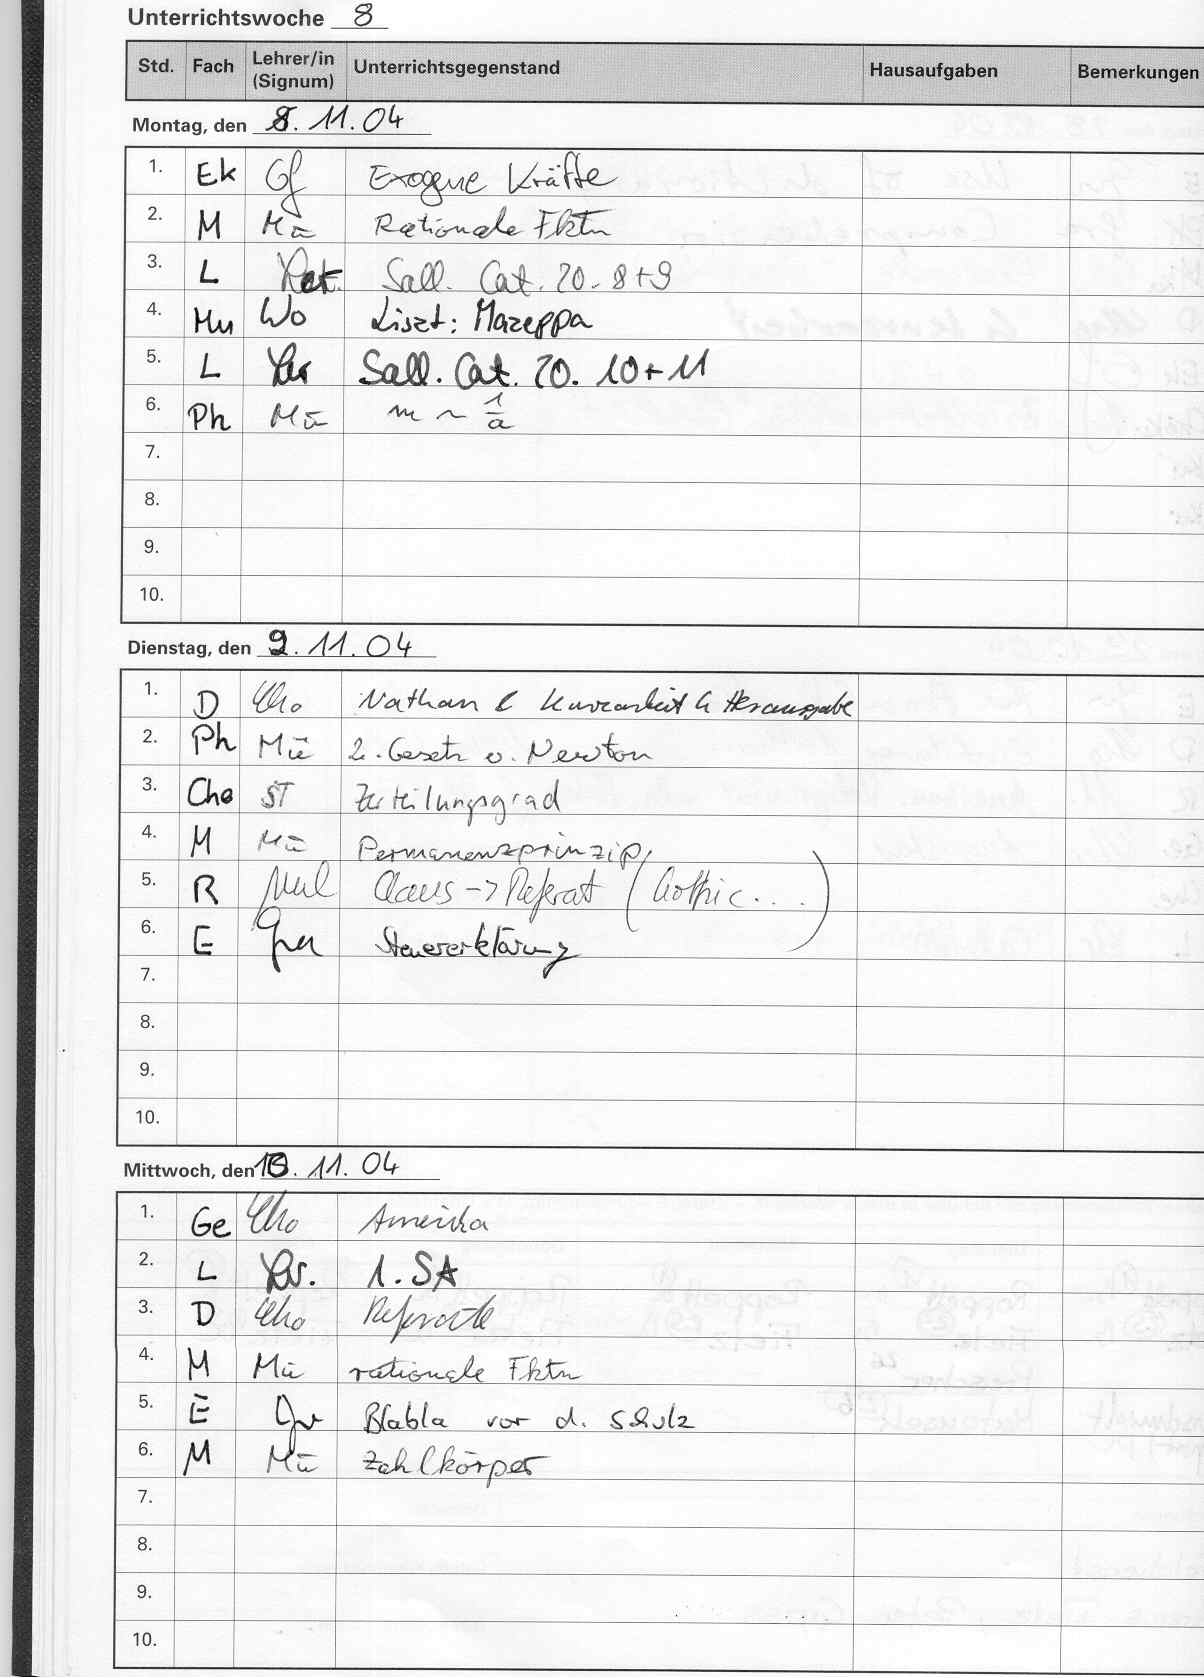 Unterrichtswoche 8
Std. Fach Lehrer/in (Signum) Unterrichtsgegenstand Hausaufgaben Bemerkungen
Montag, den 8. 11. 04
1. Ek Gf Exogene Kräfte
2. M Mü Rationale Fktn
3. L Sall. Cat. 20. 8+9
4. Mu Wo Liszt: Mazeppa
5. L Sall. Cat. 20. 10+11
6. Ph Mü m ~ 1/a
7.
8.
9.
10.
Dienstag, den 9. 11. 04
1. D Nathan Kurzarbeit Herausgabe
2. Ph Mü 2. Gesetz v. Newton
3. Che ST Zerteilungsgrad
4. M Mü Permanenzprinzip
5. R Claus -> Referat (Gothic...)
6. E Steuererklärung
7.
8.
9.
10.
Mittwoch, den 10. 11. 04
1. Ge Amerika
2. L 1. SA
3. D Referate
4. M Mü rationale Fktn
5. E Blabla vor d. Schulz
6. M Mü Zahlkörper
7.
8.
9.
10.